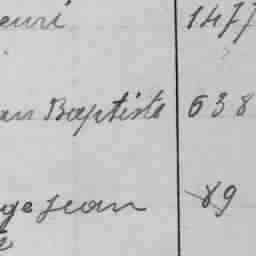 enri 1477
an Baptiste 638
ge Jean 89